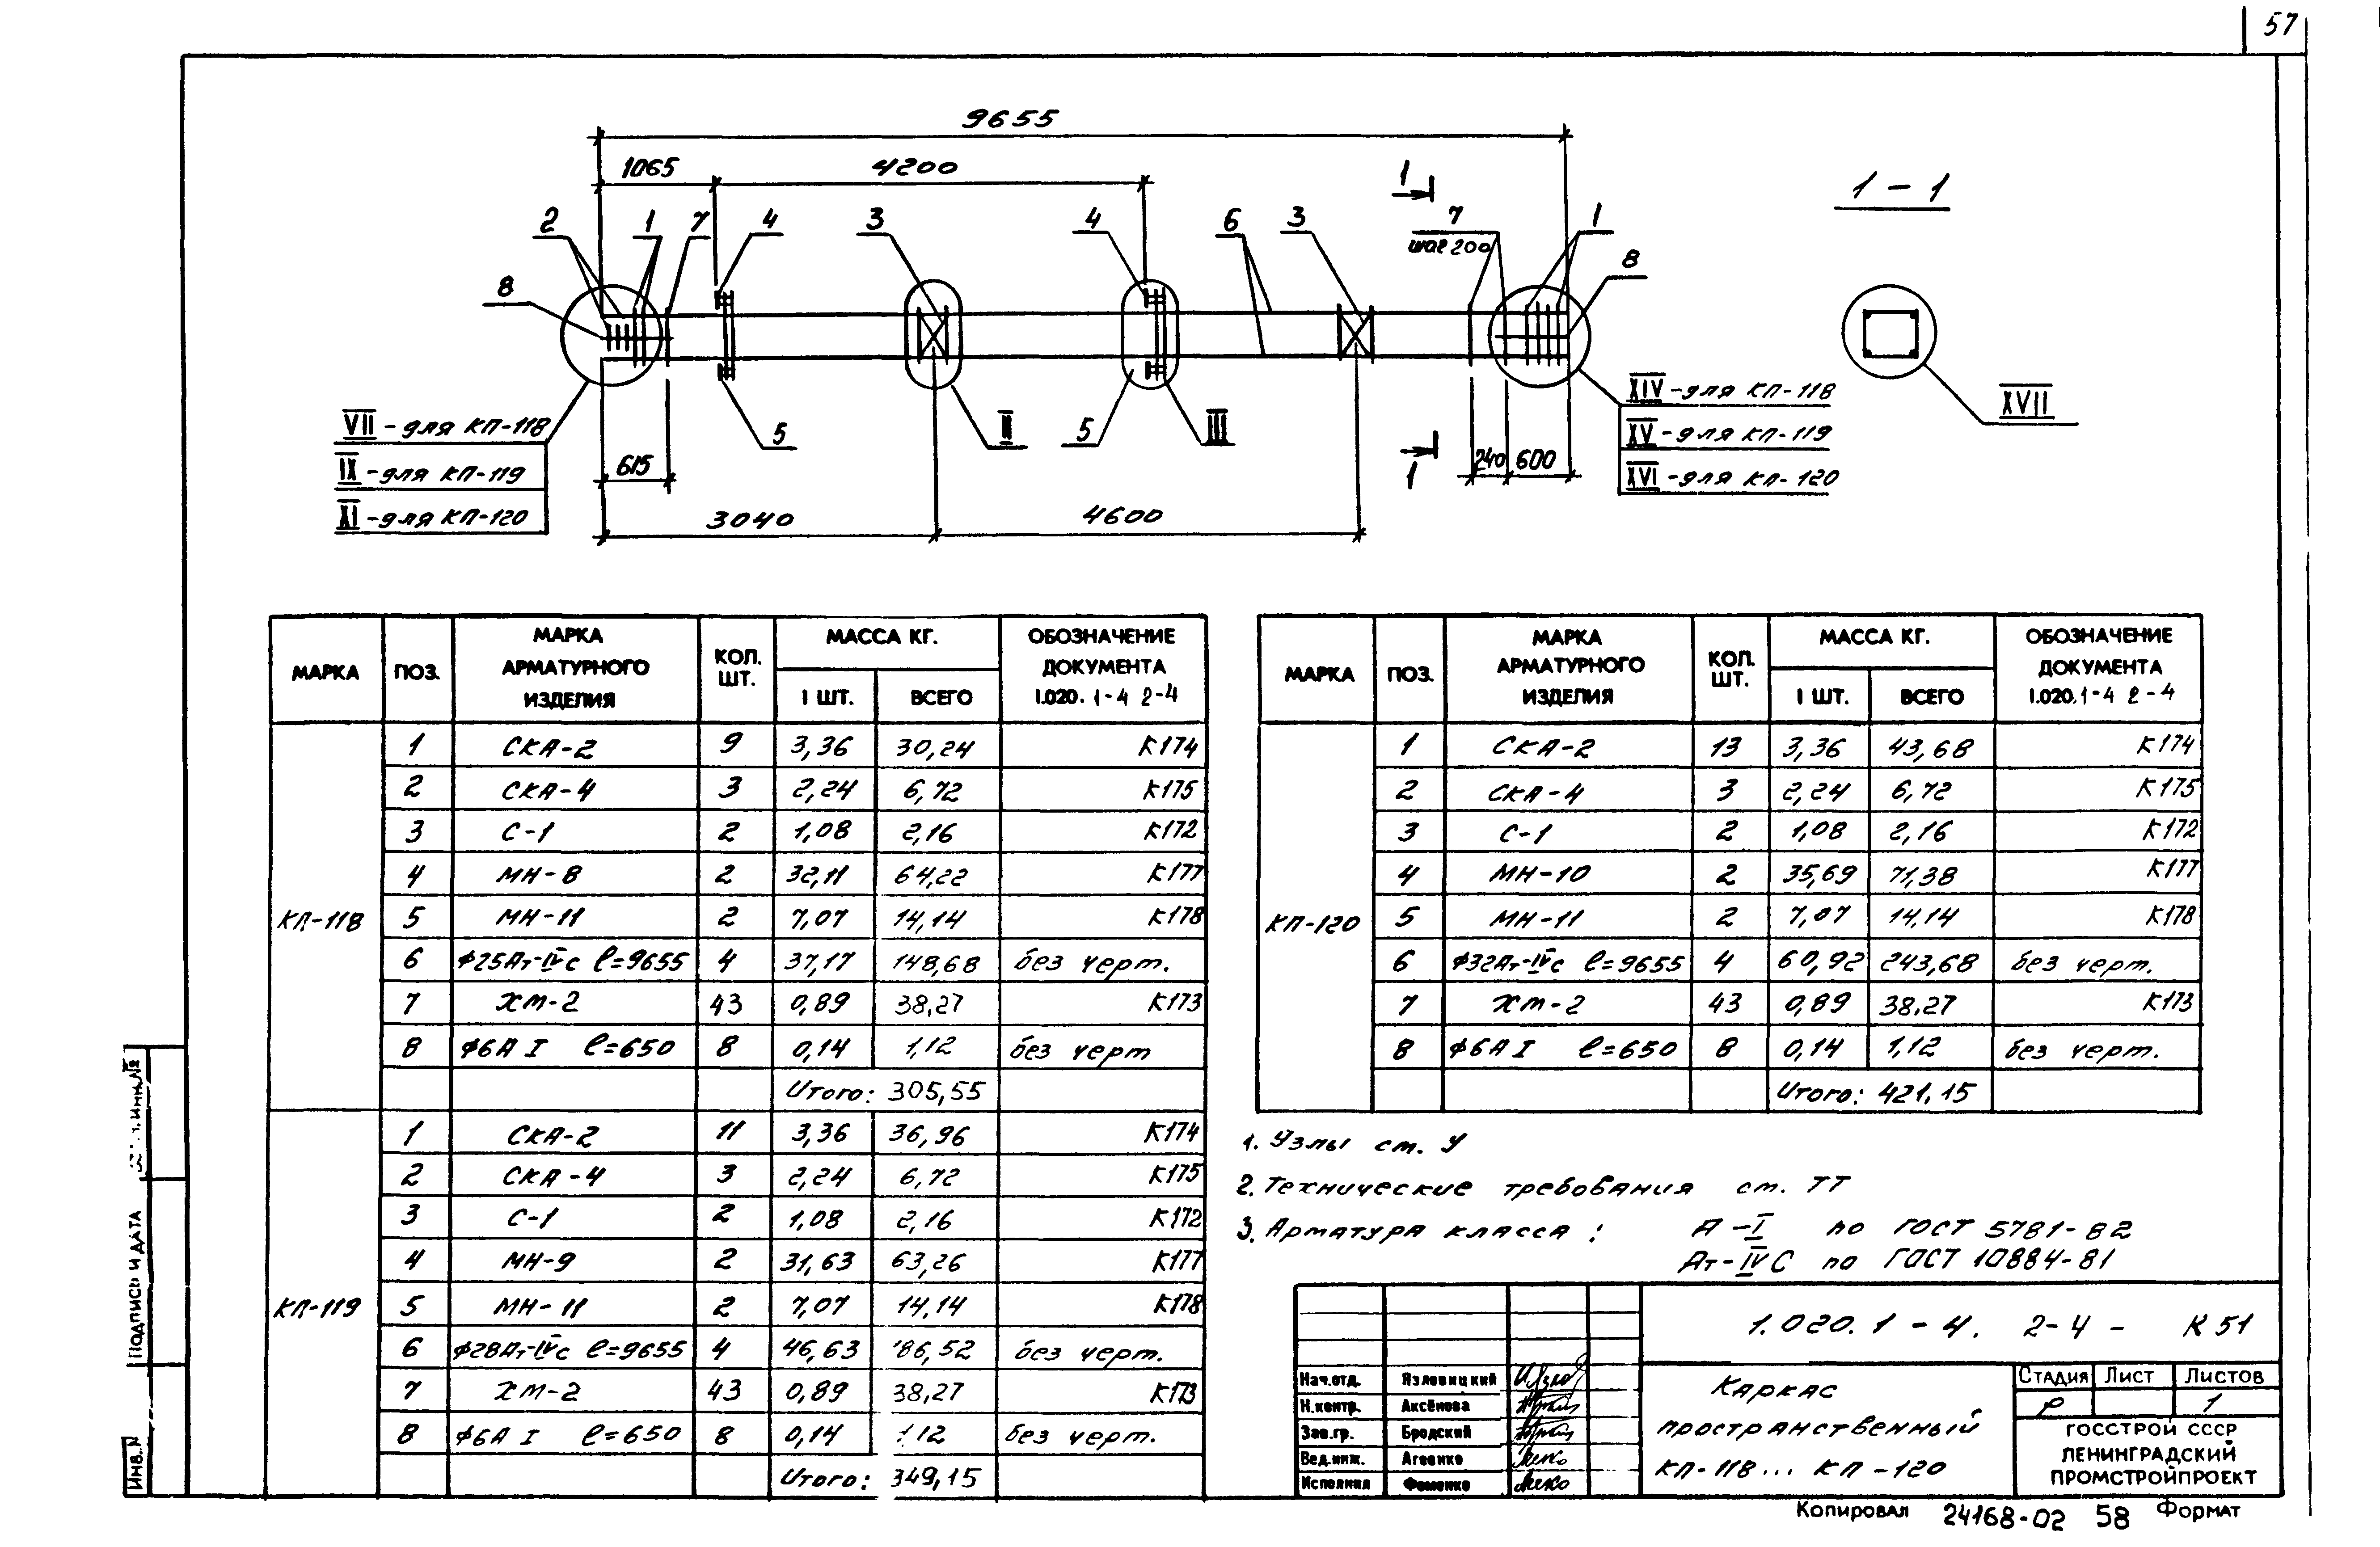 57
9655
1065 4200
1
1 - 1
2 1 7 4 3 4 6 3 7 1
шаг 200
8 8
VII - для КП-118
IX - для КП-119
XI - для КП-120
5 II 5 III
XIV - для КП-118
XV - для КП-119
XVI - для КП-120
XVII
1
615 240 600
3040 4600
МАРКА ПОЗ. МАРКА АРМАТУРНОГО ИЗДЕЛИЯ КОЛ. ШТ. МАССА КГ. ОБОЗНАЧЕНИЕ ДОКУМЕНТА 1.020.1-4 2-4
1 ШТ. ВСЕГО
КП-118
1 СКА-2 9 3,36 30,24 К174
2 СКА-4 3 2,24 6,72 К175
3 С-1 2 1,08 2,16 К172
4 МН-8 2 32,11 64,22 К177
5 МН-11 2 7,07 14,14 К178
6 ф25Ат-IVс ℓ=9655 4 37,17 148,68 без черт.
7 ХМ-2 43 0,89 38,27 К173
8 ф6А I ℓ=650 8 0,14 1,12 без черт
Итого: 305,55
КП-119
1 СКА-2 11 3,36 36,96 К174
2 СКА-4 3 2,24 6,72 К175
3 С-1 2 1,08 2,16 К172
4 МН-9 2 31,63 63,26 К177
5 МН-11 2 7,07 14,14 К178
6 ф28Ат-IVс ℓ=9655 4 46,63 186,52 без черт.
7 ХМ-2 43 0,89 38,27 К173
8 ф6А I ℓ=650 8 0,14 1,12 без черт.
Итого: 349,15
МАРКА ПОЗ. МАРКА АРМАТУРНОГО ИЗДЕЛИЯ КОЛ. ШТ. МАССА КГ. ОБОЗНАЧЕНИЕ ДОКУМЕНТА 1.020.1-4 2-4
1 ШТ. ВСЕГО
КП-120
1 СКА-2 13 3,36 43,68 К174
2 СКА-4 3 2,24 6,72 К175
3 С-1 2 1,08 2,16 К172
4 МН-10 2 35,69 71,38 К177
5 МН-11 2 7,07 14,14 К178
6 ф32Ат-IVс ℓ=9655 4 60,92 243,68 без черт.
7 ХМ-2 43 0,89 38,27 К173
8 ф6А I ℓ=650 8 0,14 1,12 без черт.
Итого: 421,15
1. Узлы см. У
2. Технические требования см. ТТ
3. Арматура класса: А-I по ГОСТ 5781-82
Ат-IVС по ГОСТ 10884-81
1.020.1-4. 2-4 - К51
Нач.отд. Язловицкий
Н.контр. Аксёнова
Зав.гр. Бродский
Вед.инж. Агевико
Исполнил Фоменко
Каркас
пространственный
КП-118... КП-120
Стадия Лист Листов
Р 1
ГОССТРОЙ СССР
ЛЕНИНГРАДСКИЙ
ПРОМСТРОЙПРОЕКТ
Копировал 24168-02 58 Формат
инв.№
Подпись и дата
Инв.№